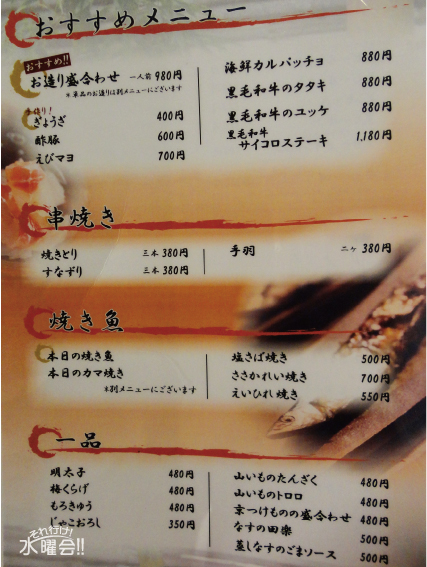 おすすめメニュー
おすすめ!!
お造り盛合わせ 一人前 980円
*単品のお造りは別メニューにございます
手作り!
ぎょうざ 400円
酢豚 600円
えびマヨ 700円
海鮮カルパッチョ 880円
黒毛和牛のタタキ 880円
黒毛和牛のユッケ 880円
黒毛和牛
サイコロステーキ 1,180円
串焼き
焼きとり 三本 380円
すなずり 三本 380円
手羽 二ヶ 380円
焼き魚
本日の焼き魚
本日のカマ焼き
*別メニューにございます
塩さば焼き 500円
ささかれい焼き 700円
えいひれ焼き 550円
一品
明太子 480円
梅くらげ 480円
もろきゅう 480円
じゃこおろし 350円
山いものたんざく 480円
山いものトロロ 480円
京つけものの盛合わせ 480円
なすの田楽 500円
蒸しなすのごまソース 500円
それ行け!
水曜会!!